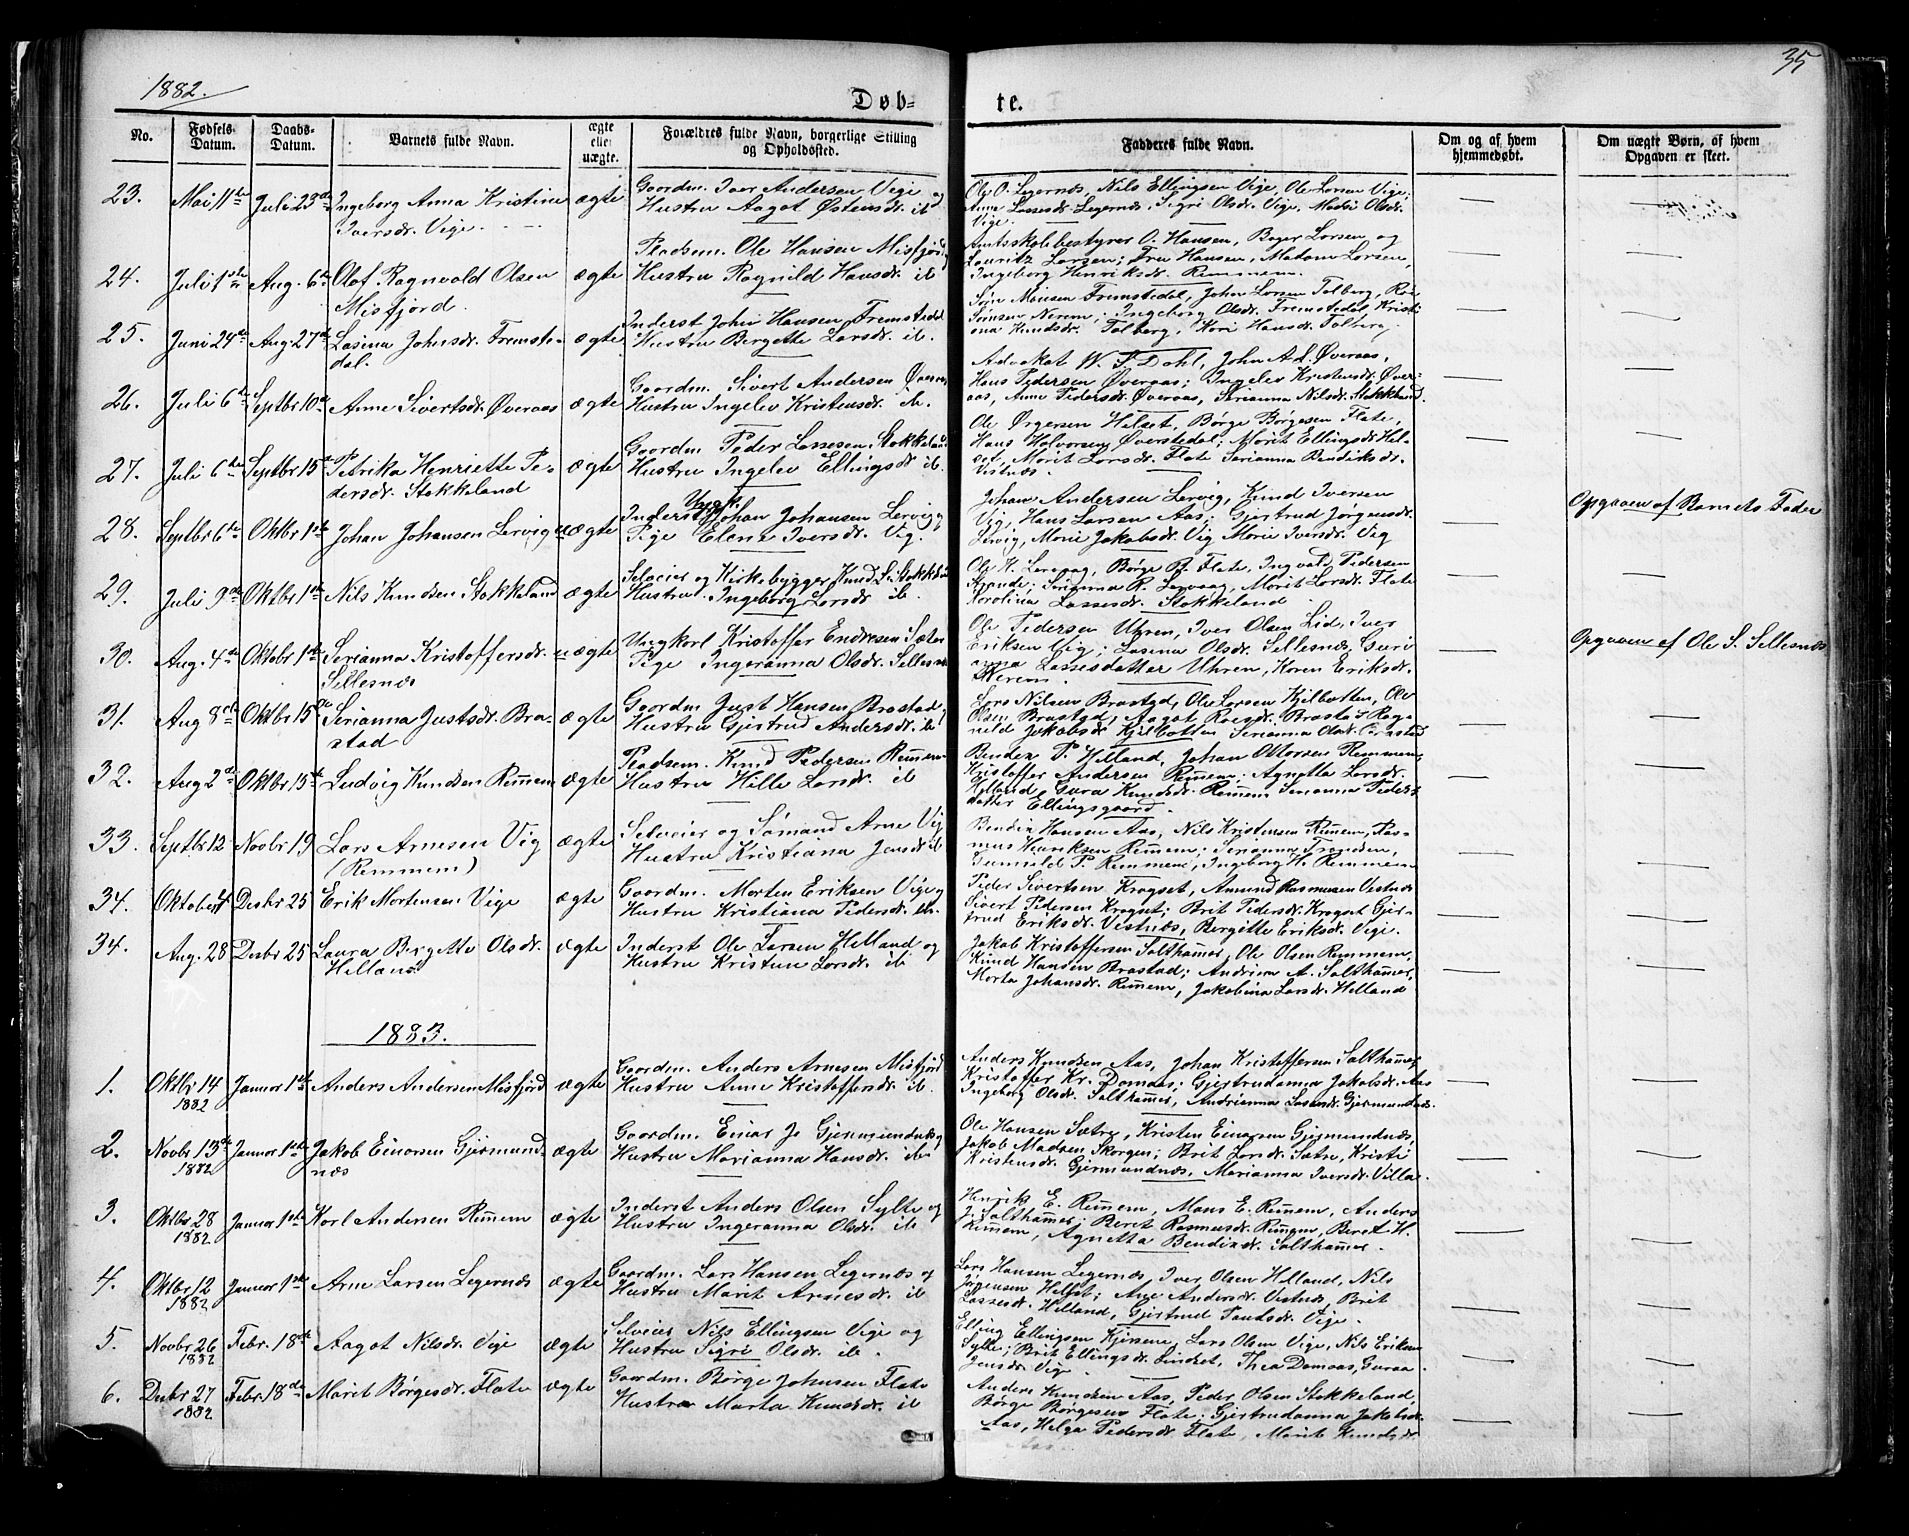 1882.
35
Døb=
te.
No.
Fødsels-
Datum.
Daabs-
Datum.
Barnets fulde Navn.
ægte
eller
uægte.
Forældres fulde Navn, borgerlige Stilling
og Opholdssted.
Fadderes fulde Navn.
Om og af hvem
hjemmedøbt.
Om uægte Børn, af hvem
Opgaven er skeet.
23. Mai 11te Juli 23de Ingeborg Anna Kristine ægte Gaardm. Iver Andersen Vige og
Iversdr. Vige. Hustru Aagot Østensdr. ib
Ole O. Legernæs, Nils Ellingsen Vige, Ole Larsen Vige;
Anne Lassesdr. Legernæs, Sigri Olsdr. Vige, Madsi Olsdr.
Vige.
24. Juli 1ste Aug. 6te Olaf Ragnvald Olsen ægte Pladsem. Ole Hansen Misfjord
Misfjord. Hustru Ragnild Hansdr. ib
Amtsskolebestyrer O. Hansen, Bager Larsen, og
Lauritz Larsen; Fru Hansen, Madam Larsen,
Ingeborg Henriksdr. Remmem.
25. Juni 24de Aug. 27de Lasina Johnsdr. Fremste- ægte Inderst John Hansen Fremstedal
dal. Hustru Bergette Larsdr. ib.
Sørn Monsen Fremstedal, John Larsen Tolberg,
Simsen Nerem; Ingeborg Olsdr. Fremstedal, Kristi-
ana Knudsdr. Tolberg, Kari Hansdr. Tolberg.
26. Juli 6te Septbr 10de Anne Sivertsdr. Øveraas ægte Gaardm. Sivert Andersen Øveraas
Hustru Ingelev Kristensdr. ib.
Advokat W. S. Dahl, John A. Øveraas,
Hans Pedersen Øveraas; Ingelev Kristensdr. Øver-
aas, Anne Pedersdr. Øveraas, Serianna Nilsdr. Stokkeland.
27. Juli 6te Septbr 15de Petrika Henriette Pe- ægte Gaardm Peder Lassesen Stokkeland
dersdr. Stokkeland Hustru Ingelev Ellingsdr ib
Ole Ørgersen Helset, Børge Børgesen Flate,
Hans Halvorsen Øverstedal; Marit Ellingsdr Hel-
set, Marit Larsdr. Flate Serianna Bendiksdr.
Vestnæs.
28. Septbr 6te Oktbr 1ste Johan Johansen Lervig uægte Inderst Ungk. Johan Johansen Lervig
Pige Elene Iversdr. Vig.
Johan Andersen Lervig, Knud Iversen
Vig, Hans Larsen Aas; Gjertrud Jørgensdr.
Lervig, Marie Jakobsdr. Vig Marie Iversdr. Vig
Opgaven af Barnets Fader
29. Juli 9de Oktbr 1ste Nils Knudsen Stokkeland ægte Selveier og Kirkebygger Knud S. Stokkeland
Hustru Ingeborg Larsdr. ib.
Ole K. Lervaag, Børge B. Flate, Ingvald Pedersen
Strande; Serianna R. Lervaag, Marit Larsdr. Flate
Karolina Lassesdr. Stokkeland
30. Aug. 4de Oktobr 1ste Serianna Kristoffersdr. uægte Ungkarl Kristoffer Endresen Sæter
Sellesnæs Pige Ingeranna Olsdr. Sellesnæs
Ole Pedersen Uhren, Iver Olsen Lid, Iver
Eriksen Vig; Lasina Olsdr. Sellesnæs, Guri-
anna Lassesdatter Uhren, Karen Eriksdr.
Nerem.
Opgaven af Ole S. Sellesnæs
31. Aug 8de Oktbr 15de Serianna Justsdr. Bra- ægte Gaardm Just Hansen Brastad
stad Hustru Gjertrud Andersdr. ib
Lars Nilsen Brastad, Ole Larsen Kjelbotten, Ole
Olsen Brastad, Aagot Roesdr. Brastad Rag-
nild Jakobsdr Kjelbotten Serianna Olsdr. Brastad
32. Aug 2de Oktbr 15de Ludvig Knudsen Remem ægte Pladsem. Knud Pedersen Remem
Hustru Hille Larsdr. ib
Bendix P. Helland, Johan Ottorsen Remmem,
Kristoffer Andersen Remem; Agnetta Larsdr.
Helland, Gura Knudsdr. Remem Serianna Peders-
datter Ellingsgaard.
33. Septbr 12 Novbr 19 Lars Arnesen Vig ægte Selveier og Sømand Arne Vig
(Remmem) Hustru Kristiana Jensdr ib
Bendix Hansen Aas, Nils Kristensen Remem, Ras-
mus Henriksen Remem; Serianna Frandsen,
Gunnild P. Remmem, Ingeborg H. Remmem
34. Oktober 4 Desbr 25 Erik Mortensen Vige ægte Gaardm. Morten Eriksen Vige og
Hustru Kristiana Pedersdr. ib.
Peder Sivertsen Krogset, Amund Rasmusen Vestnæs
Sivert Pedersen Krogset; Brit Pedersdr. Krogset Gjer-
trud Eriksdr. Vestnæs, Bergitte Eriksdr. Vige.
34. Aug. 28 Desbr 25 Laura Bergette Olsdr. ægte Inderst Ole Larsen Helland og
Helland Hustru Kristine Larsdr. ib
Jakob Kristoffersen Salthamer, Ole Olsen Remmem,
Knud Hansen Brastad; Andrina A. Salthamer,
Marta Johansdr. Remem, Jakobina Larsdr. Helland
1883.
1. Oktbr 14 Januar 1ste Anders Andersen Misfjord ægte Gaardm. Anders Arnesen Misfjord
1882 Hustru Anne Kristoffersdr. ib
Anders Knudsen Aas, Johan Kristoffersen Salthamer,
Kristoffer Kr. Domaas; Gjertrudanna Jakobsdr. Aas
Ingeborg Olsdr. Salthamer, Andrianna Lassesdr. Gjermundnæs.
2. Novbr 13de Januar 1ste Jakob Einarsen Gjermund- ægte Gaardm. Einar J. Gjermundnæs
1882 næs Hustru Marianna Hansdr. ib
Ole Hansen Sætre, Kristen Einarsen Gjermundnæs,
Jakob Madsen Skorgen; Brit Larsdr. Sætre, Kristi
Kristensdr. Gjermundnæs, Marianna Iversdr. Villa.
3. Oktbr 28 Januar 1ste Karl Andersen Remem ægte Inderst Anders Olsen Sylte og
1882 Hustru Ingeranna Olsdr. ib
Henrik E. Remem, Mons E. Remem, Anders
J. Salthamer; Berit Rasmusdr. Remem, Beret H.
Remem, Agnetta Bendixdr. Salthamer.
4. Oktbr 12 Januar 1ste Arne Larsen Legernæs ægte Gaardm. Lars Hansen Legernæs og
1882 Hustru Marit Arnesdr. ib
Lars Hansen Legernæs, Iver Olsen Helland, Nils
Jørgensen Helset; Ane Andersdr. Vestnæs, Brit
Lassesdr. Helland, Gjertrud Tautsdr. Vige.
5. Novbr 26 Febr. 18de Aagot Nilsdr. Vige ægte Selveier Nils Ellingsen Vige og
1882 Hustru Sigri Olsdr. ib.
Elling Ellingsen Kjersem, Lars Olsen Vige, Nils Eriksen
Sylte; Brit Ellingsdr. Lindset, Thea Domaas, Guraa
Jensdr. Vige
6. Desbr 27 Febr. 18de Marit Børgesdr. Flate ægte Gaardm. Børge Johnsen Flate
1882 Hustru Marta Knudsdr. ib
Anders Knudsen Aas, Peder Olsen Stokkeland,
Børge Børgesen Flate; Gjertrudanna Jakobsdr.
Aas, Helga Pedersdr. Flate, Marit Knudsdr.